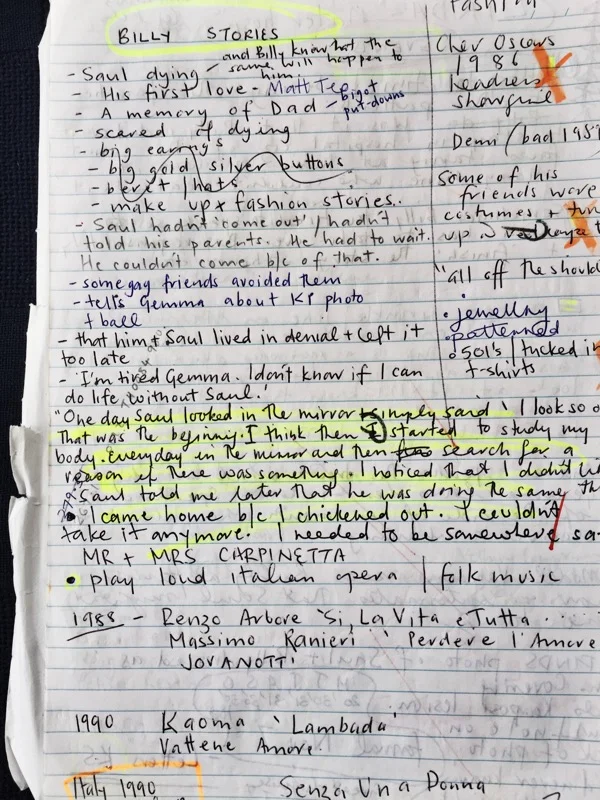 BILLY STORIES
and Billy knew that the
same will happen to
him.
- Saul dying
- His first love - Matt
- A memory of Dad - bigot
put-downs
- scared of dying
- big earrings
- big gold silver buttons
- beret hats
- make up x fashion stories..
- Saul hadn't 'come out' / hadn't
told his parents. He had to wait.
He couldn't come b/c of that.
- some gay friends avoided them
- tells Gemma about KP photo
+ ball
- that him + Saul lived in denial + left it
too late
- 'I'm tired Gemma. I don't know if I can
do life without Saul.'
"One day Saul looked in the mirror + simply said ' I look so o
That was the beginning. I think then I started to study my
body. Everyday in the mirror and then search for a
reason if there was something. I noticed that I didn't
Saul told me later that he was doing the same th
• I came home b/c I chickened out. I couldn't
take it anymore. I needed to be somewhere sa
MR + MRS CARPINETTA
• play loud italian opera | folk music
1988 - Renzo Arbore 'Si, La Vita e Tutta ...
Massimo Ranieri ' Perdere l'Amore
JOVANOTTI
1990 Kaoma 'Lambada'
Vattene Amore.
Italy 1990 Senza Una Donna
Fashion
Cher Oscars
1986
headdress
showgirl
Demi / bad 1989
Some of his
friends wore
costumes +
up
"all off the should
• jewellry
• patterned
• 501's | tucked in
t-shirts